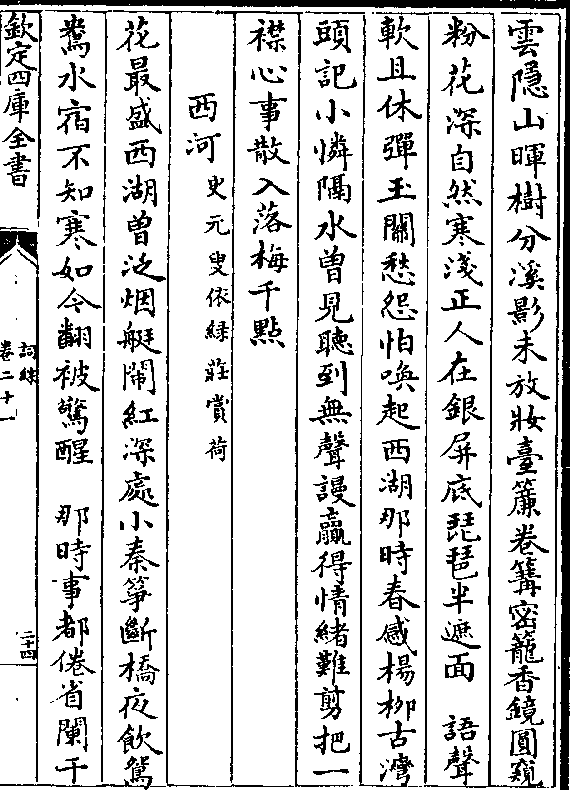 雲隱山暉樹分溪影未放妝臺簾卷篝密籠香鏡圓窺
粉花深自然寒淺正人在銀屏底琵琶半遮面　語聲
軟且休彈玉關愁怨怕喚起西湖那時春感楊柳古灣
頭記小憐隔水曾見聽到無聲謾贏得情緒難剪把一
襟心事散入落梅千點
西河　史元叟依綠莊賞荷
花最盛西湖曾泛烟艇鬧紅深處小秦箏斷橋夜飲鴛
鴦水宿不知寒如今翻被驚醒　那時事都倦省闌干
欽定四庫全書
詞綜
卷二十一
二十四